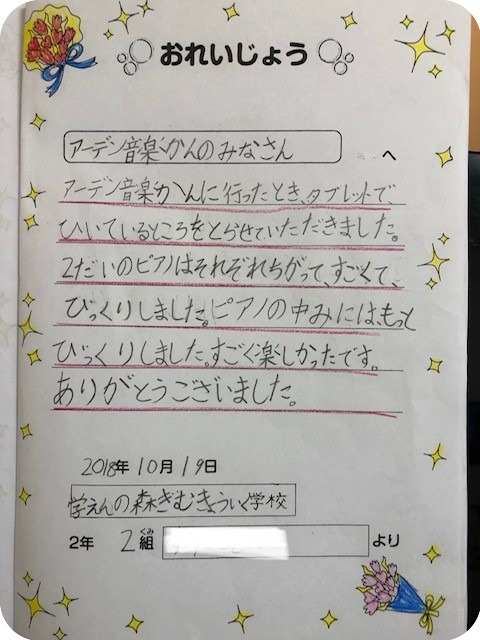 おれいじょう
アーデン音楽かんのみなさん
へ
アーデン音楽かんに行ったとき、タブレットで
ひいているところをとらせていただきました。
2だいのピアノはそれぞれちがって、すごくて、
びっくりしました。ピアノの中みには、もっと
びっくりしました。すごく楽しかったです。
ありがとうございました。
2018年10月19日
学えんの森ぎむきょういく学校
2年 2組 より
くみ